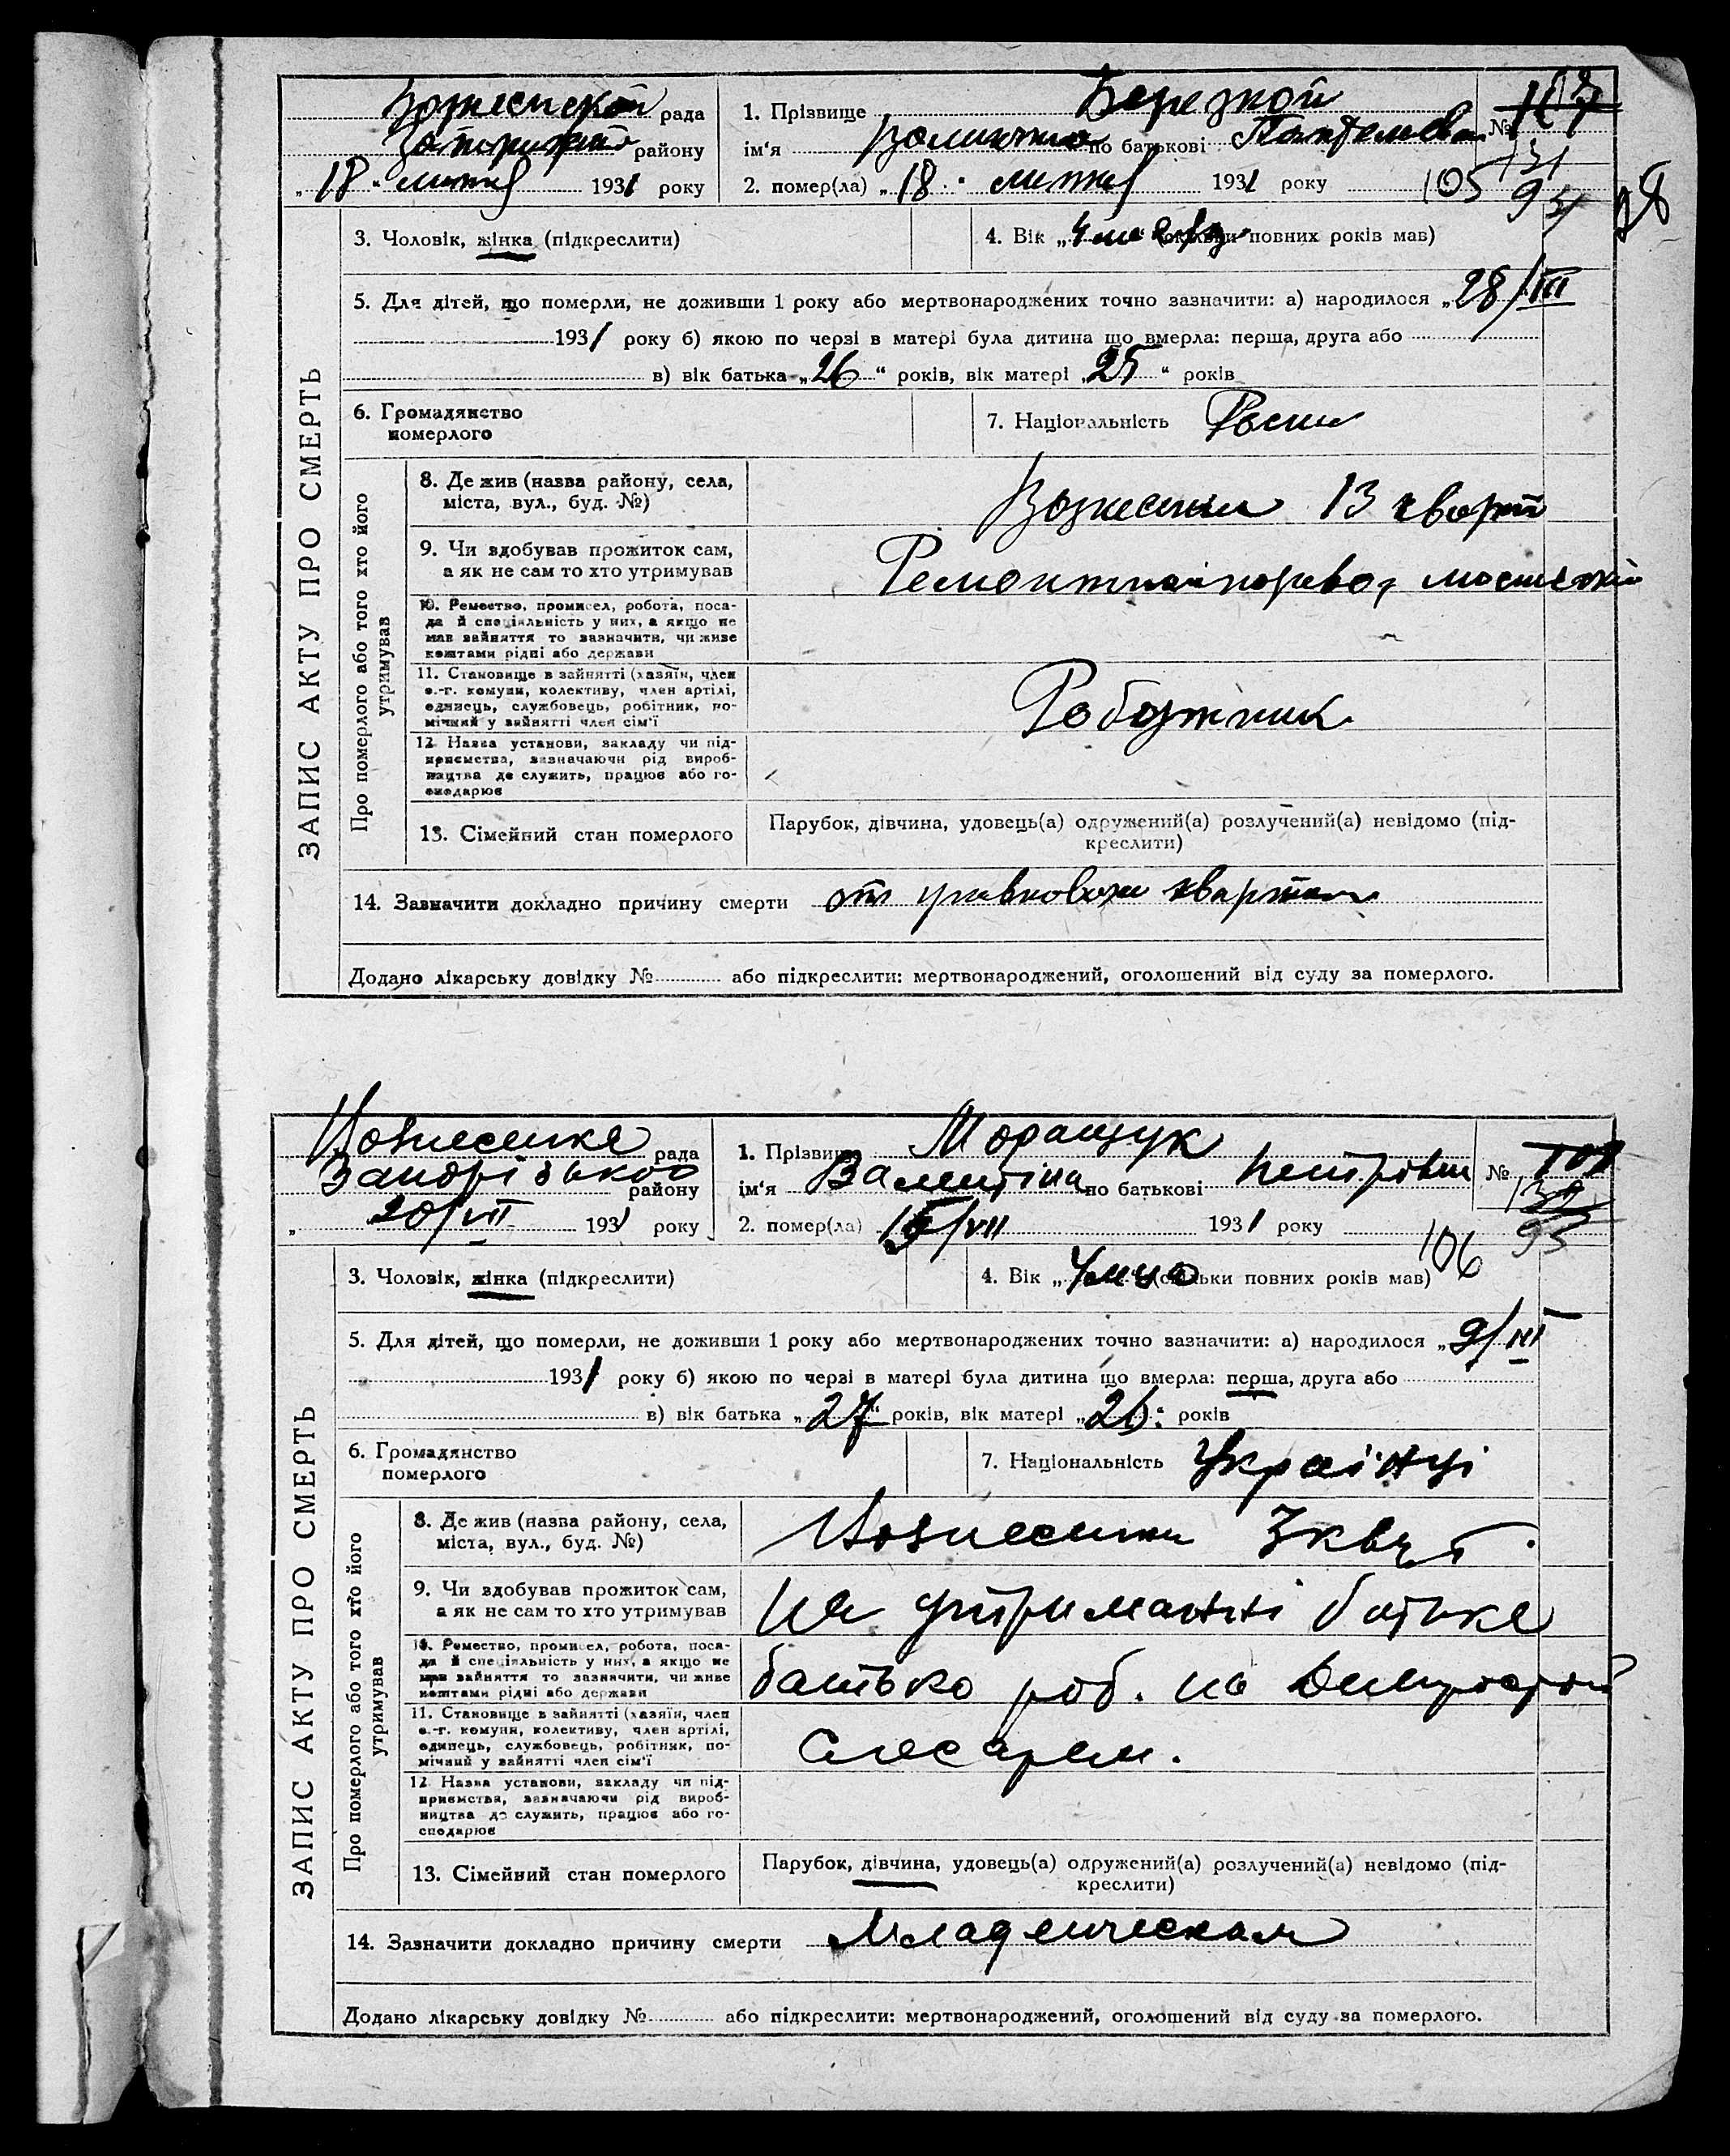 рада
району
„18“ липня 1931 року
1. Прізвище Березной
ім'я по батькові
2. помер(ла) „18“ липня 1931 року
№
131
105
98
3. Чоловік, жінка (підкреслити)
4. Вік „4 повних років мав)
5. Для дітей, що померли, не доживши 1 року або мертвонароджених точно зазначити: а) народилося „28/III
1931 року б) якою по черзі в матері була дитина що вмерла: перша, друга або
в) вік батька „26“ років, вік матері „25“ років
6. Громадянство
померлого
7. Національність
ЗАПИС АКТУ ПРО СМЕРТЬ
Про померлого або того хто його
утримував
8. Де жив (назва району, села,
міста, вул., буд. №)
13
9. Чи здобував прожиток сам,
а як не сам то хто утримував
10. Ремество, промисел, робота, поса-
да й спеціяльність у них, а якщо не
мав зайняття то зазначити, чи живе
коштами рідні або держави
11. Становище в зайнятті (хазяїн, член
с.-г. комуни, колективу, член артілі,
одинець, службовець, робітник, по-
мічний у зайнятті член сім'ї
Работник
12 Назва установи, закладу чи під-
приємства, зазначаючи рід вироб-
ництва де служить, працює або го-
сподарює
13. Сімейний стан померлого
Парубок, дівчина, удовець(а) одружений(а) розлучений(а) невідомо (під-
креслити)
14. Зазначити докладно причину смерти от
Додано лікарську довідку № або підкреслити: мертвонароджений, оголошений від суду за померлого.
Вознесенка рада
Запорізького району
„20/VII 1931 року
1. Прізвище Моращук
ім'я Валентіна по батькові Петрівна
2. помер(ла) /VII 1931 року
№
106
95
3. Чоловік, жінка (підкреслити)
4. Вік „4 повних років мав)
5. Для дітей, що померли, не доживши 1 року або мертвонароджених точно зазначити: а) народилося „9/III
1931 року б) якою по черзі в матері була дитина що вмерла: перша, друга або
в) вік батька „27“ років, вік матері років
6. Громадянство
померлого
7. Національність Українці
ЗАПИС АКТУ ПРО СМЕРТЬ
Про померлого або того хто його
утримував
8. Де жив (назва району, села,
міста, вул., буд. №)
Вознесенка 3
9. Чи здобував прожиток сам,
а як не сам то хто утримував
На утриманні батька
10. Ремество, промисел, робота, поса-
да й спеціяльність у них, а якщо не
мав зайняття то зазначити, чи живе
коштами рідні або держави
батько роб. на Дніпрострой
11. Становище в зайнятті (хазяїн, член
с.-г. комуни, колективу, член артілі,
одинець, службовець, робітник, по-
мічний у зайнятті член сім'ї
Слесарем.
12 Назва установи, закладу чи під-
приємства, зазначаючи рід вироб-
ництва де служить, працює або го-
сподарює
13. Сімейний стан померлого
Парубок, дівчина, удовець(а) одружений(а) розлучений(а) невідомо (під-
креслити)
14. Зазначити докладно причину смерти Младенческая
Додано лікарську довідку № або підкреслити: мертвонароджений, оголошений від суду за померлого.